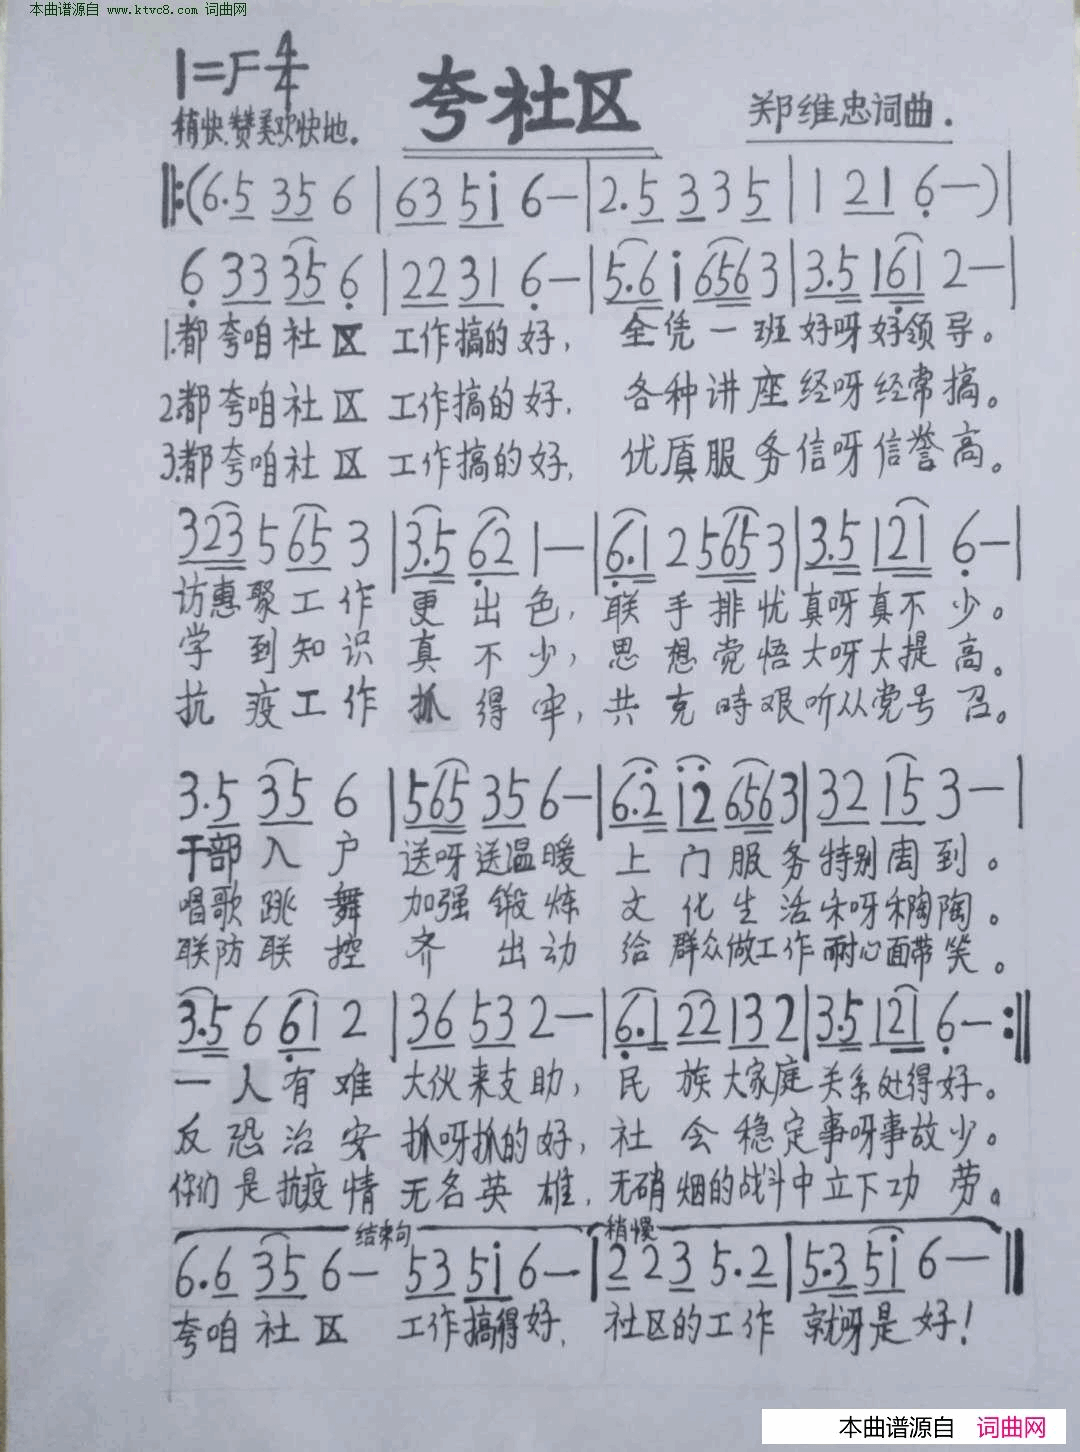 本曲谱源自 www.ktvc8.com 词曲网
1=F 4/4
夸社区
稍快.赞美欢快地。
郑维忠词曲.
‖:(6.5 35 6 | 63 5i 6— | 2.5 3 3 5 | 1 21 6—)|
6 33 35 6 | 22 31 6— | 5.6 i 656 3 | 3.5 161 2— |
1.都夸咱社区 工作搞的好, 全凭一班好呀好领导。
2.都夸咱社区 工作搞的好, 各种讲座经呀经常搞。
3.都夸咱社区 工作搞的好, 优质服务信呀信誉高。
323 5 65 3 | 3.5 62 1— | 6.1 2 565 3 | 3.5 121 6— |
访惠聚工作 更出色, 联手排忧真呀真不少。
学到知识 真不少, 思想党悟大呀大提高。
抗疫工作 抓得牢, 共克時艰听从党号召。
3.5 35 6 | 565 35 6— | 6.2 i2 656 3 | 32 15 3— |
干部入户 送呀送温暖 上门服务特别周到。
唱歌跳舞 加强锻炼 文化生活乐呀乐陶陶。
联防联控 齐出动 给群众做工作耐心面带笑。
3.5 6 61 2 | 36 53 2— | 6.1 22 13 2 | 3.5 121 6— :‖
一人有难 大伙来支助, 民族大家庭关系处得好。
反恐治安 抓呀抓的好, 社会稳定事呀事故少。
你们是抗疫情 无名英雄, 无硝烟的战斗中立下功劳。
结束句 稍慢
6.6 35 6— 53 5i 6— | 2 2 3 5.2 | 5.3 5i 6— ‖
夸咱社区 工作搞得好, 社区的工作 就呀是好!
本曲谱源自 词曲网